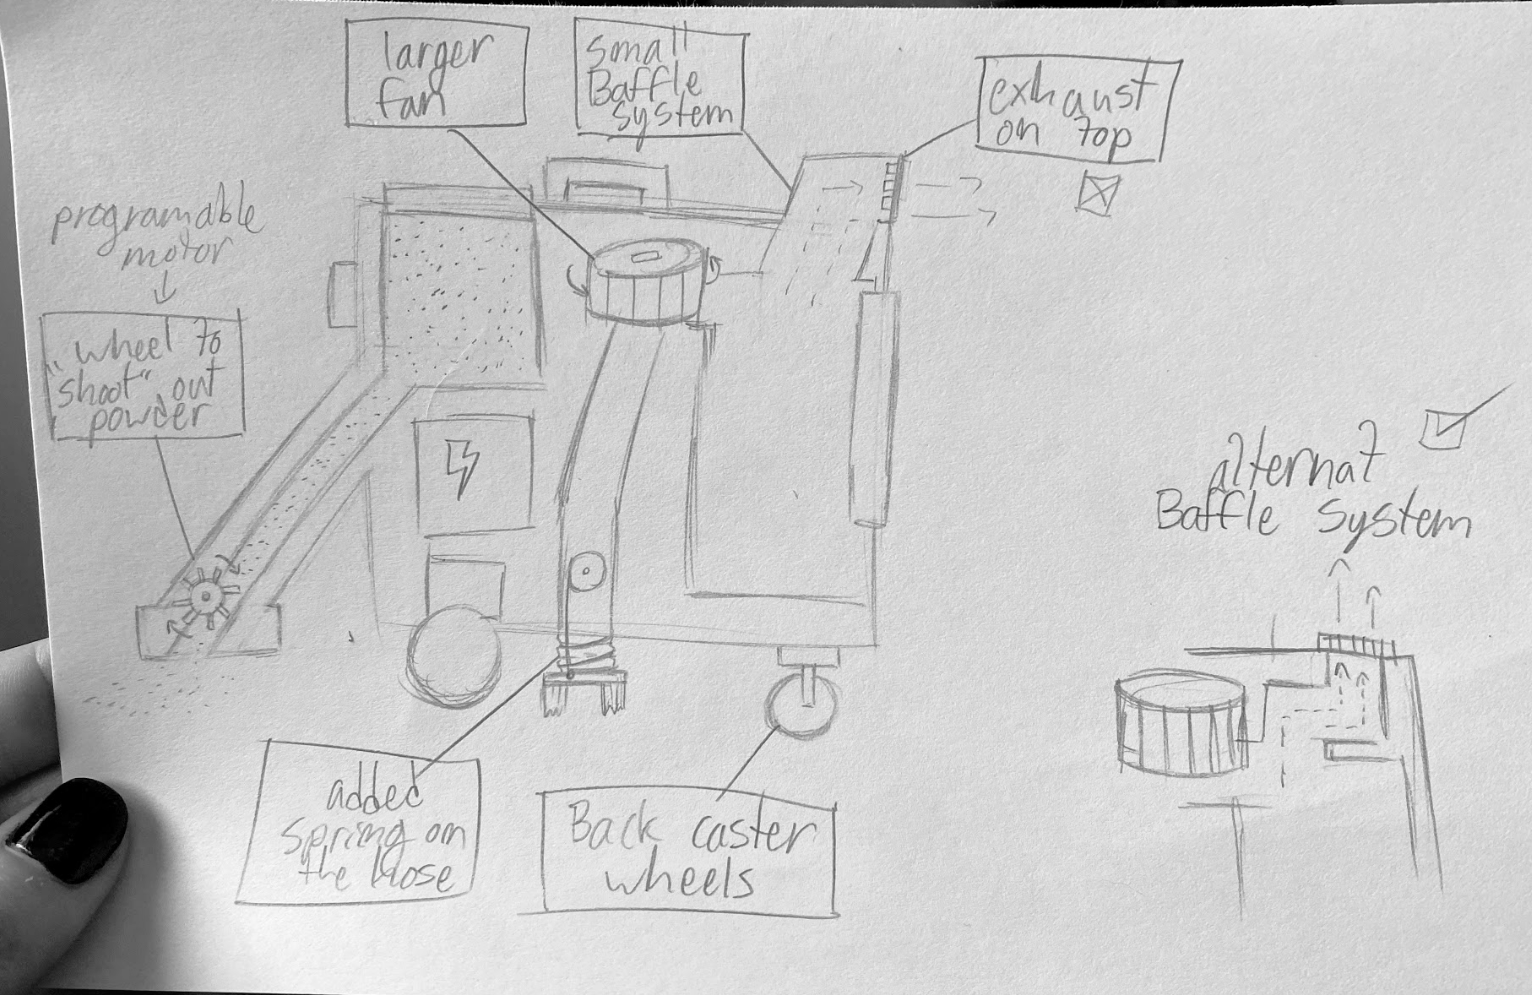 larger
fan
small
Baffle
system
exhaust
on top
programable
motor
"wheel to
shoot" out
powder
alternat
Baffle system
added
spring on
the hose
Back caster
wheels